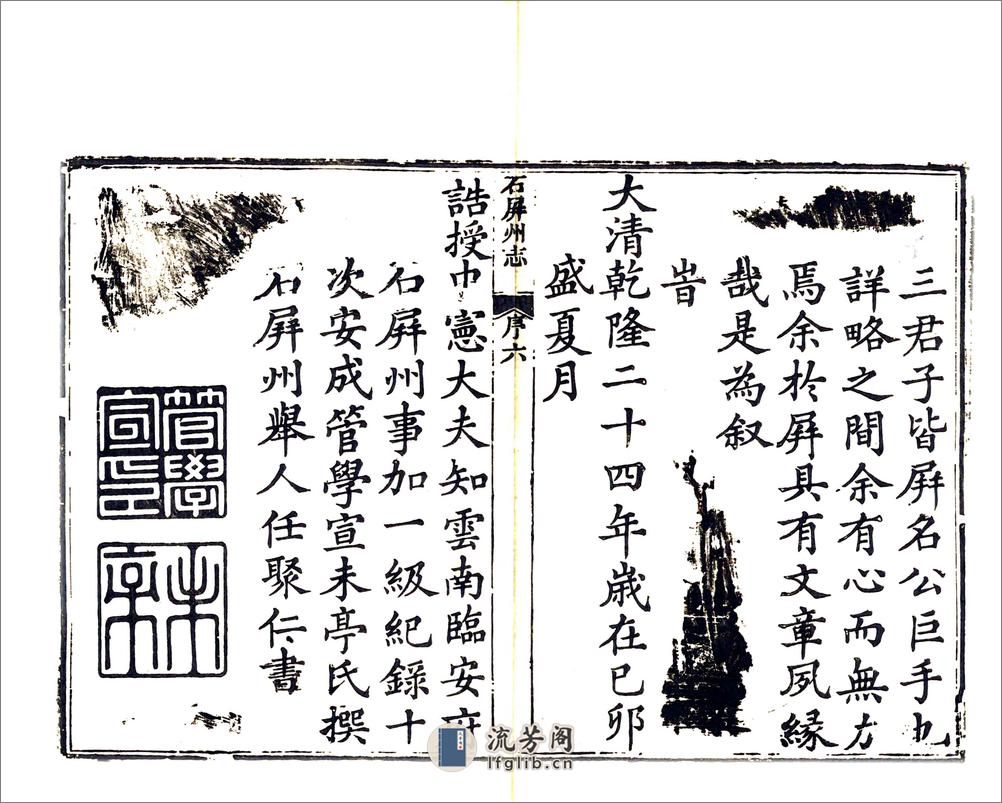 三君子皆屏名公巨手也
詳略之間余有心而無力
焉余於屏具有文章夙緣
哉是為叙
旹
大清乾隆二十四年歲在己卯
盛夏月
石屏州志
序六
誥授中憲大夫知雲南臨安府
石屏州事加一級紀錄十
次安成管學宣未亭氏撰
石屏州舉人任聚仁書
管學
宣印
未
亭
流芳阁
lfglib.cn